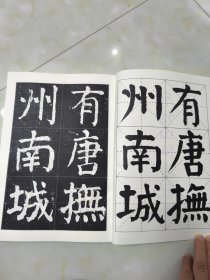 有唐撫
州南城
有唐撫
州南城